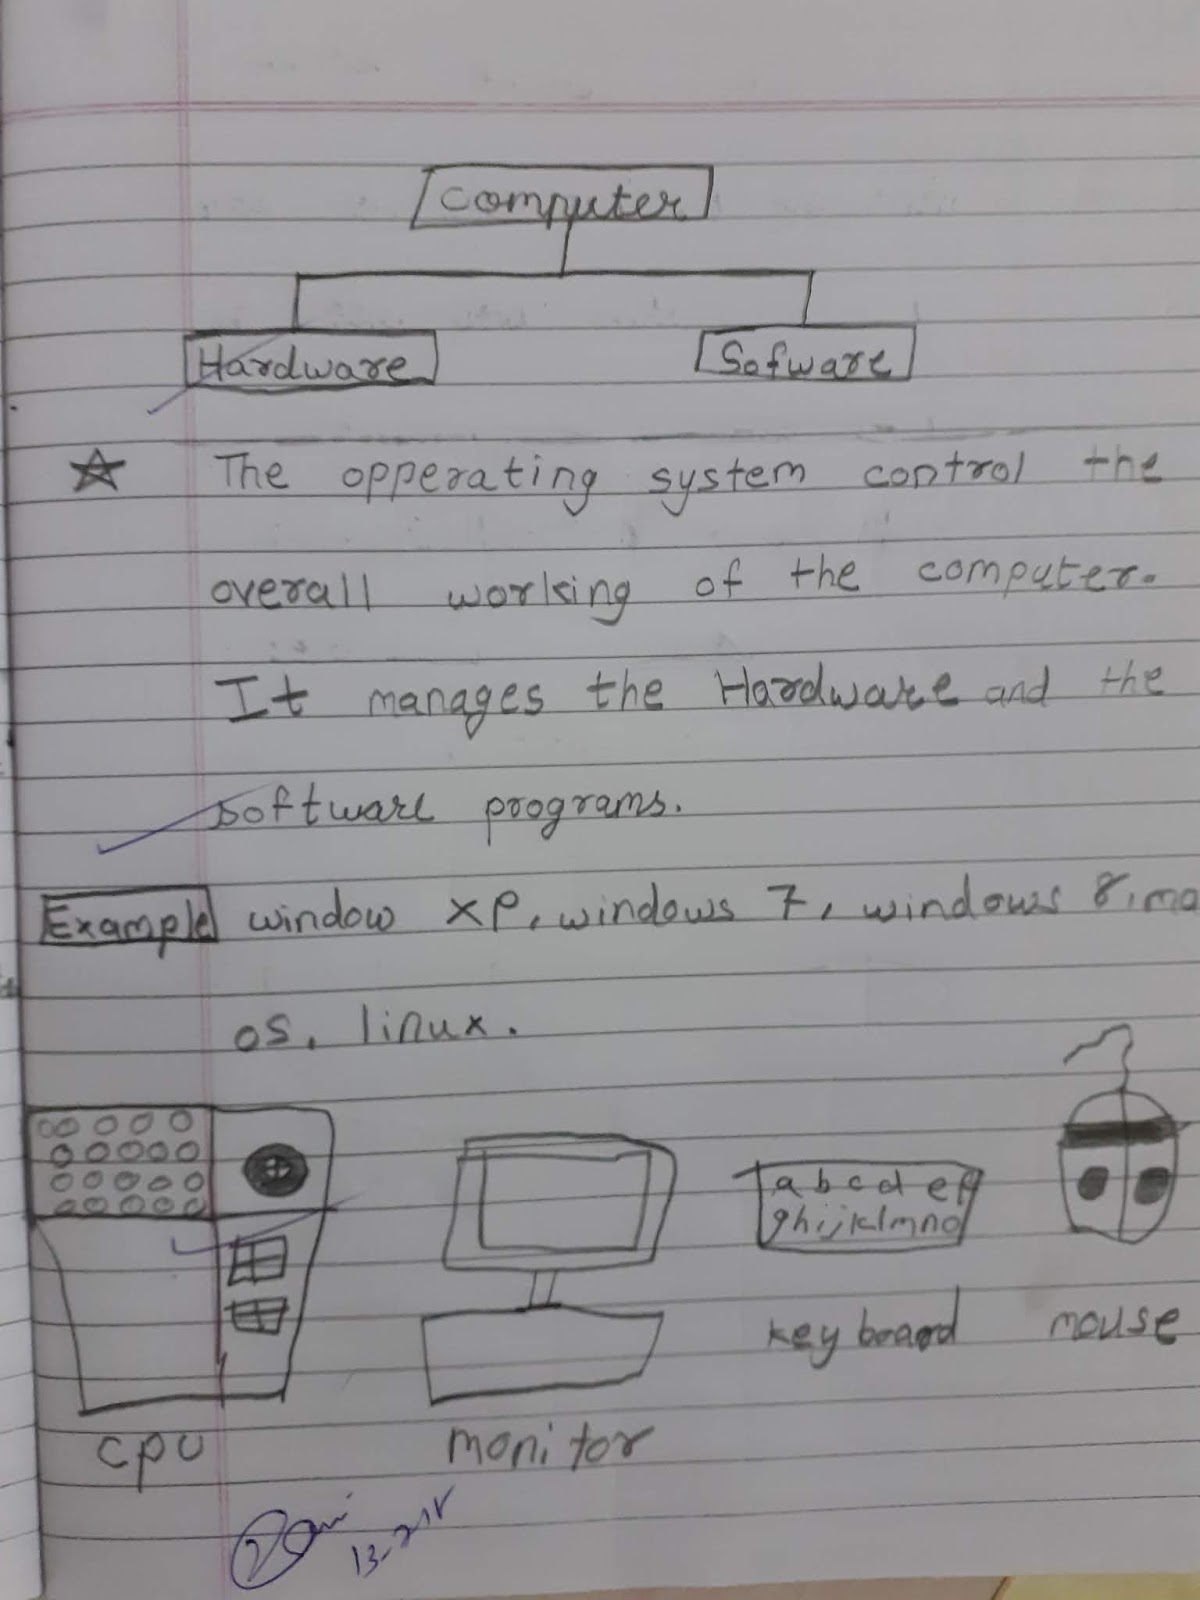 Computer
Hardware Sofware
The opperating system control the
overall working of the computer.
It manages the Hardware and the
software programs.
Example window XP, windows 7, windows 8, ma
os, linux.
abcd ef
ghijklmno
keyboard mouse
cpu monitor